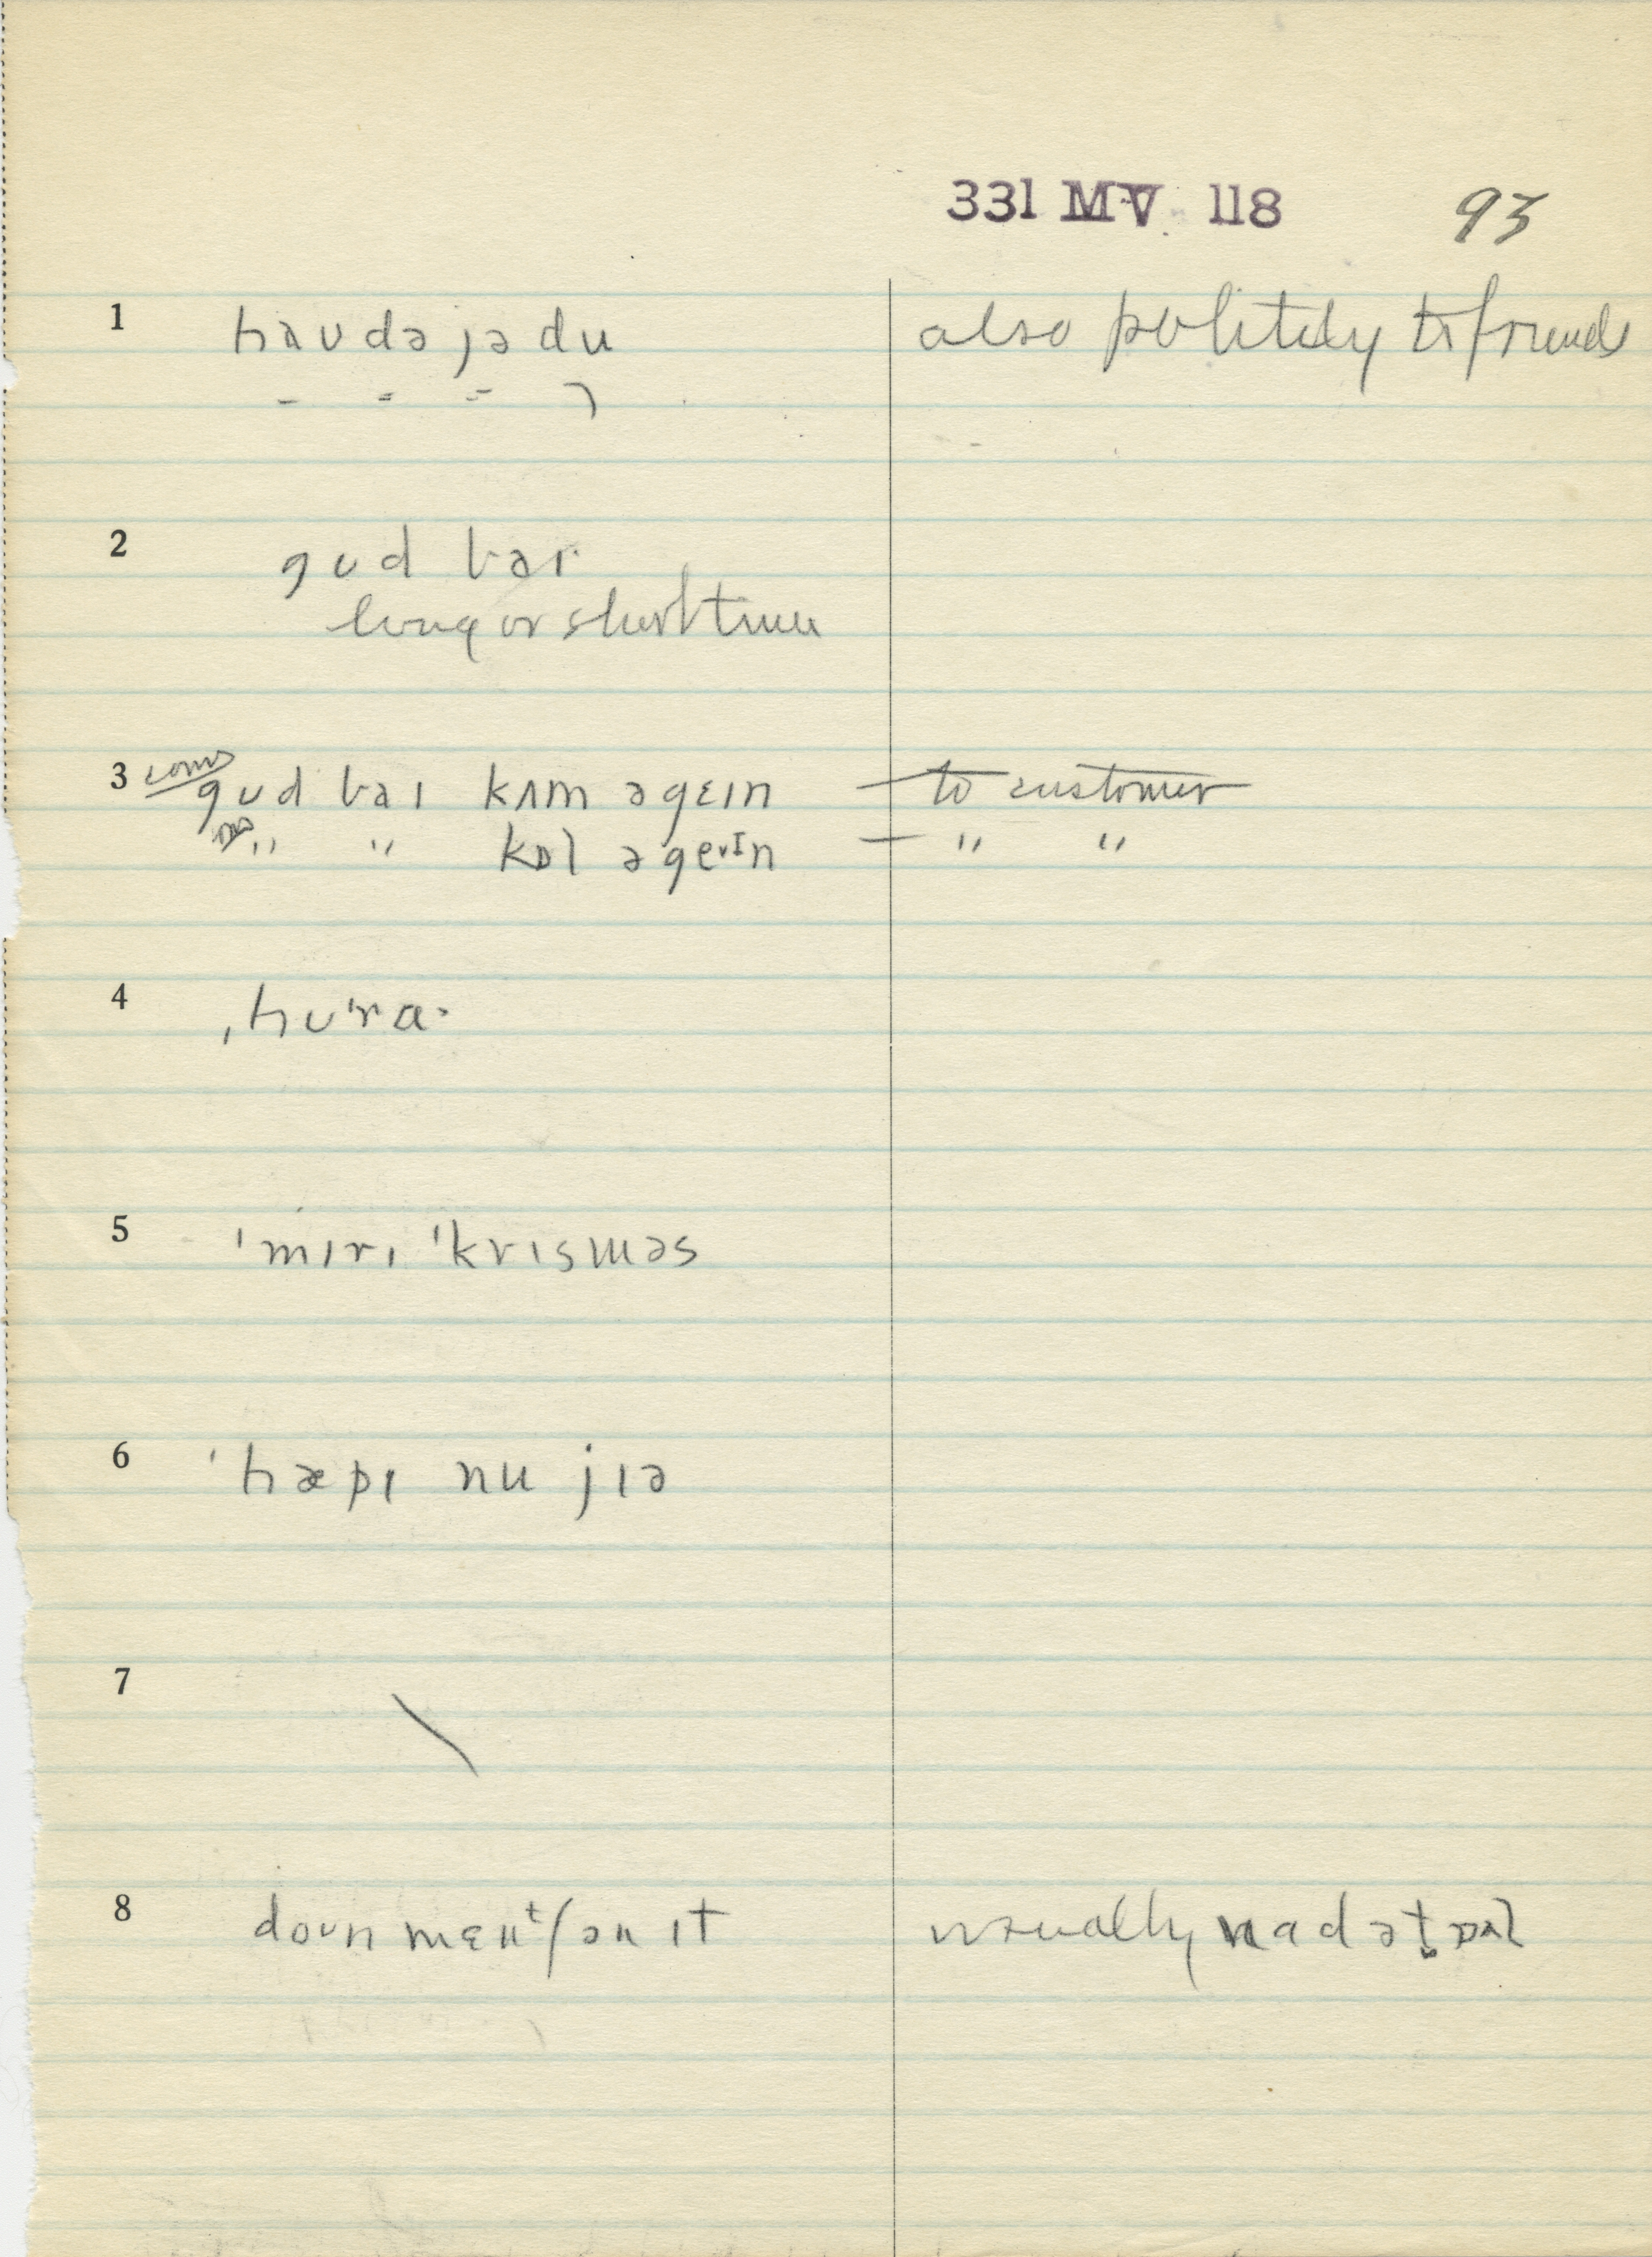 331 MV 118 93
1 haʊdəjədu also politely to friends
2 gʊd baɪ
long or short time
3 gʊd baɪ kʌm əgɛɪn — to customer
" " kɒl əgeɪn — " "
4 ˌhʊˈra·
5 ˈmɪrɪ ˈkrɪsməs
6 ˈhæpɪ nu jɪə
7 \
8 doʊn mɛnᵗʃən ɪt usually nadət̬ɒl